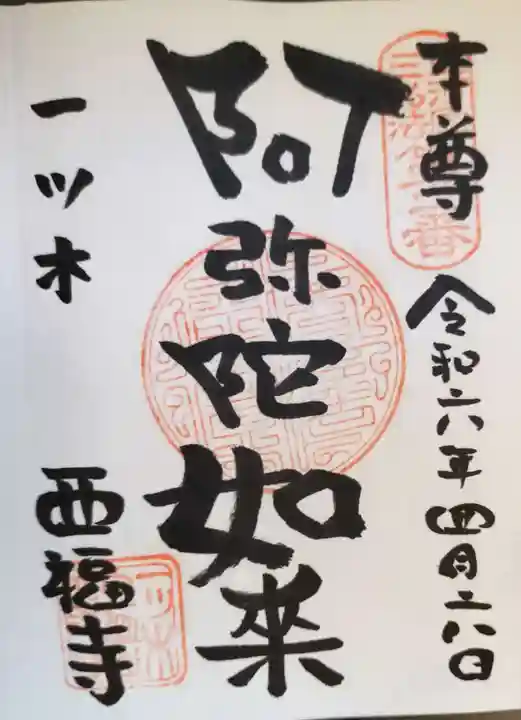 本尊
令和六年四月六日
阿弥陀如来
一ツ木
西福寺